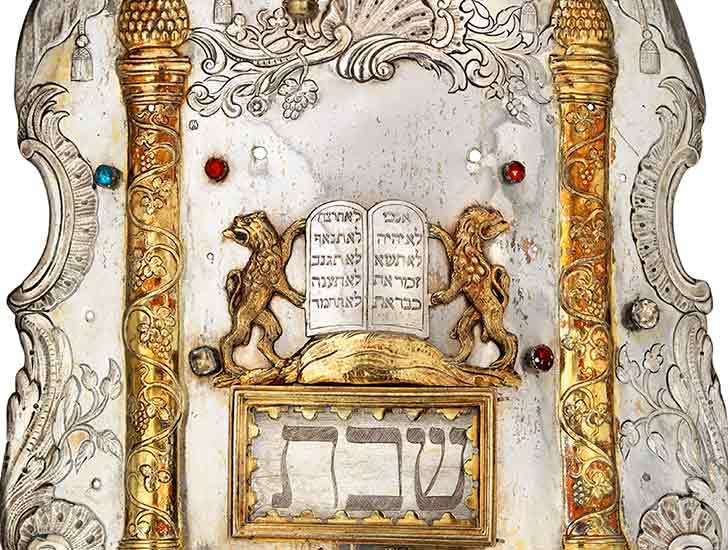 אנכי
לא יהיה
לא תשא
זכור את
כבד את
לא תרצח
לא תנאף
לא תגנב
לא תענה
לא תחמד
שבת